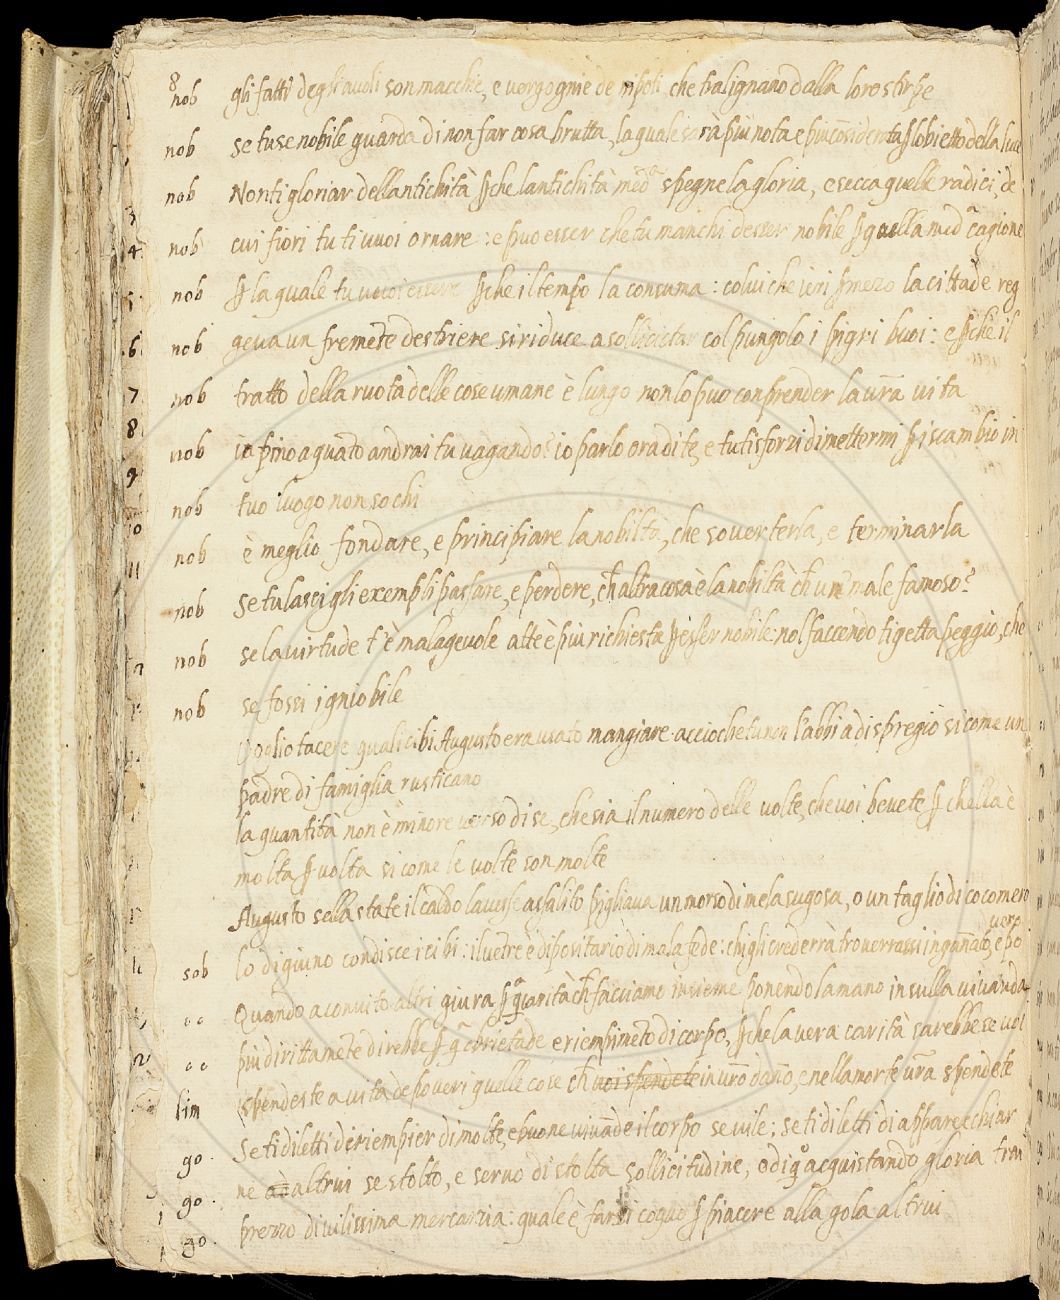 8
nob gli fatti degli avoli son macchie, e vergognie de nipoti, che tralignano dalla loro stirpe
nob se tu se nobile guarda di non far cosa brutta, la quale sarà piu nota e piu cõsiderata ꝑ lobietto della luce
nob Non ti gloriar dellantichità ꝑche lantichità med.ª spegne la gloria, e secca quelle radici, de
nob cui fiori tu ti vuoi ornare: e puo esser che tu manchi desser nobile ꝑ quella med.ª cagione
nob ꝑ la quale tu vuoi essere ꝑche il tempo la consuma: colui che ieri ꝑ mezo la cittade reg
nob geva un fremẽte destriere si riduce a sollecitar col pungolo i pigri buoi: e ꝑche il
nob tratto della ruota delle cose umane è lungo non lo puo conprender la vr̃a vita
nob io fino a quãto andrai tu vagando? io parlo ora di te, e tu ti sforzi di mettermi ꝑ iscambio in
nob tuo luogo non so chi
nob è meglio fondare, e principiare la nobiltà, che soverterla, e terminarla
nob se tu lasci gli exempli passare, e perdere, ch̃ altra cosa è la nobiltà ch̃ un male famoso?
nob se la virtude t'è malagevole a tte è piu richiesta ꝑ esser nobile: nol faccendo ti getta peggio, che
nob se fossi igniobile
Voglio tacere quali cibi Augusto era usato mangiare acciochè tu non l'abbi a dispregio sicome un
padre di famiglia rusticano
la quantità non è minore verso di se, che sia il numero delle volte, che voi bevete ꝑ chella è
molta ꝑ volta sicome le volte son molte
Augusto sella state il caldo lavesse assalito pigliava un morso di mela sugosa, o un taglio di cocomero
vero
sob lo digiuno condisce i cibi: il vẽtre è dipositario di mala fede: chi gli crederrà troverrassi ingannato, e po
Quando a convito altri giura ꝑ carità ch̃ facciamo insieme ponendo la mano in sulla vivanda
piu dirittamẽte direbbe ꝑ ebrietade e riempimẽto di corpo, ꝑche la vera carità sarebbe se voi
lim spendeste a vita de poveri quelle cose ch̃ voi spendete in vr̃o dano, e nella morte vr̃a spendete
go. Se ti diletti di riempier di molte, e buone vivãde il corpo se vile; se ti diletti di apparecchiar
go. ne ad altrui se stolto, e servo di stolta sollicitudine, acquistando gloria
go. prezzo di vilissima mercanzia: quale è farsi coquo ꝑ piacere alla gola altrui